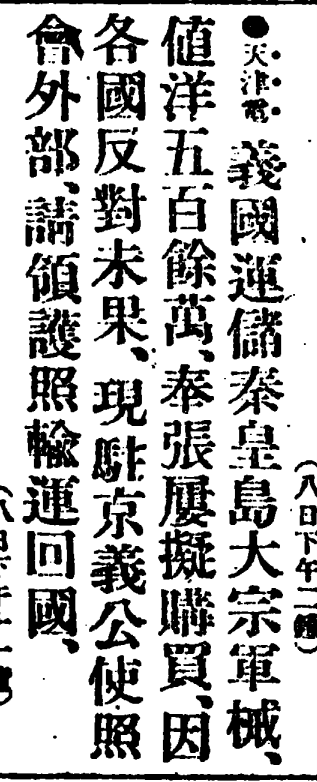 ●天津電　義國運儲秦皇島大宗軍械、
値洋五百餘萬、奉張屢擬購買、因
各國反對未果、現駐京義公使照
會外部、請領護照輸運回國、
（八日下午二鐘）